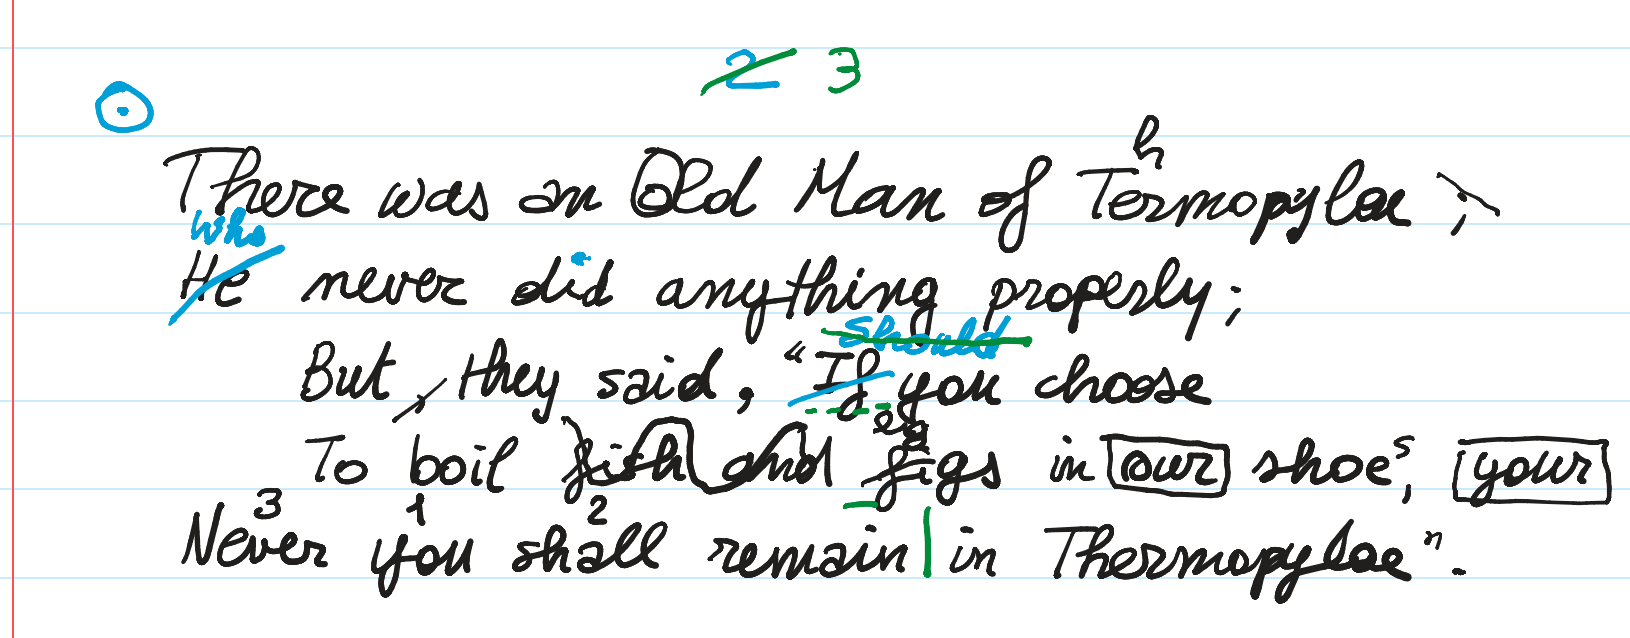 2 3
h
There was an Old Man of Termopylae ;
who
He never did anything properly;
should
But, they said, "If you choose
eg
To boil fish and figs in our shoes, your
3 1 2
Never you shall remain in Thermopylae".